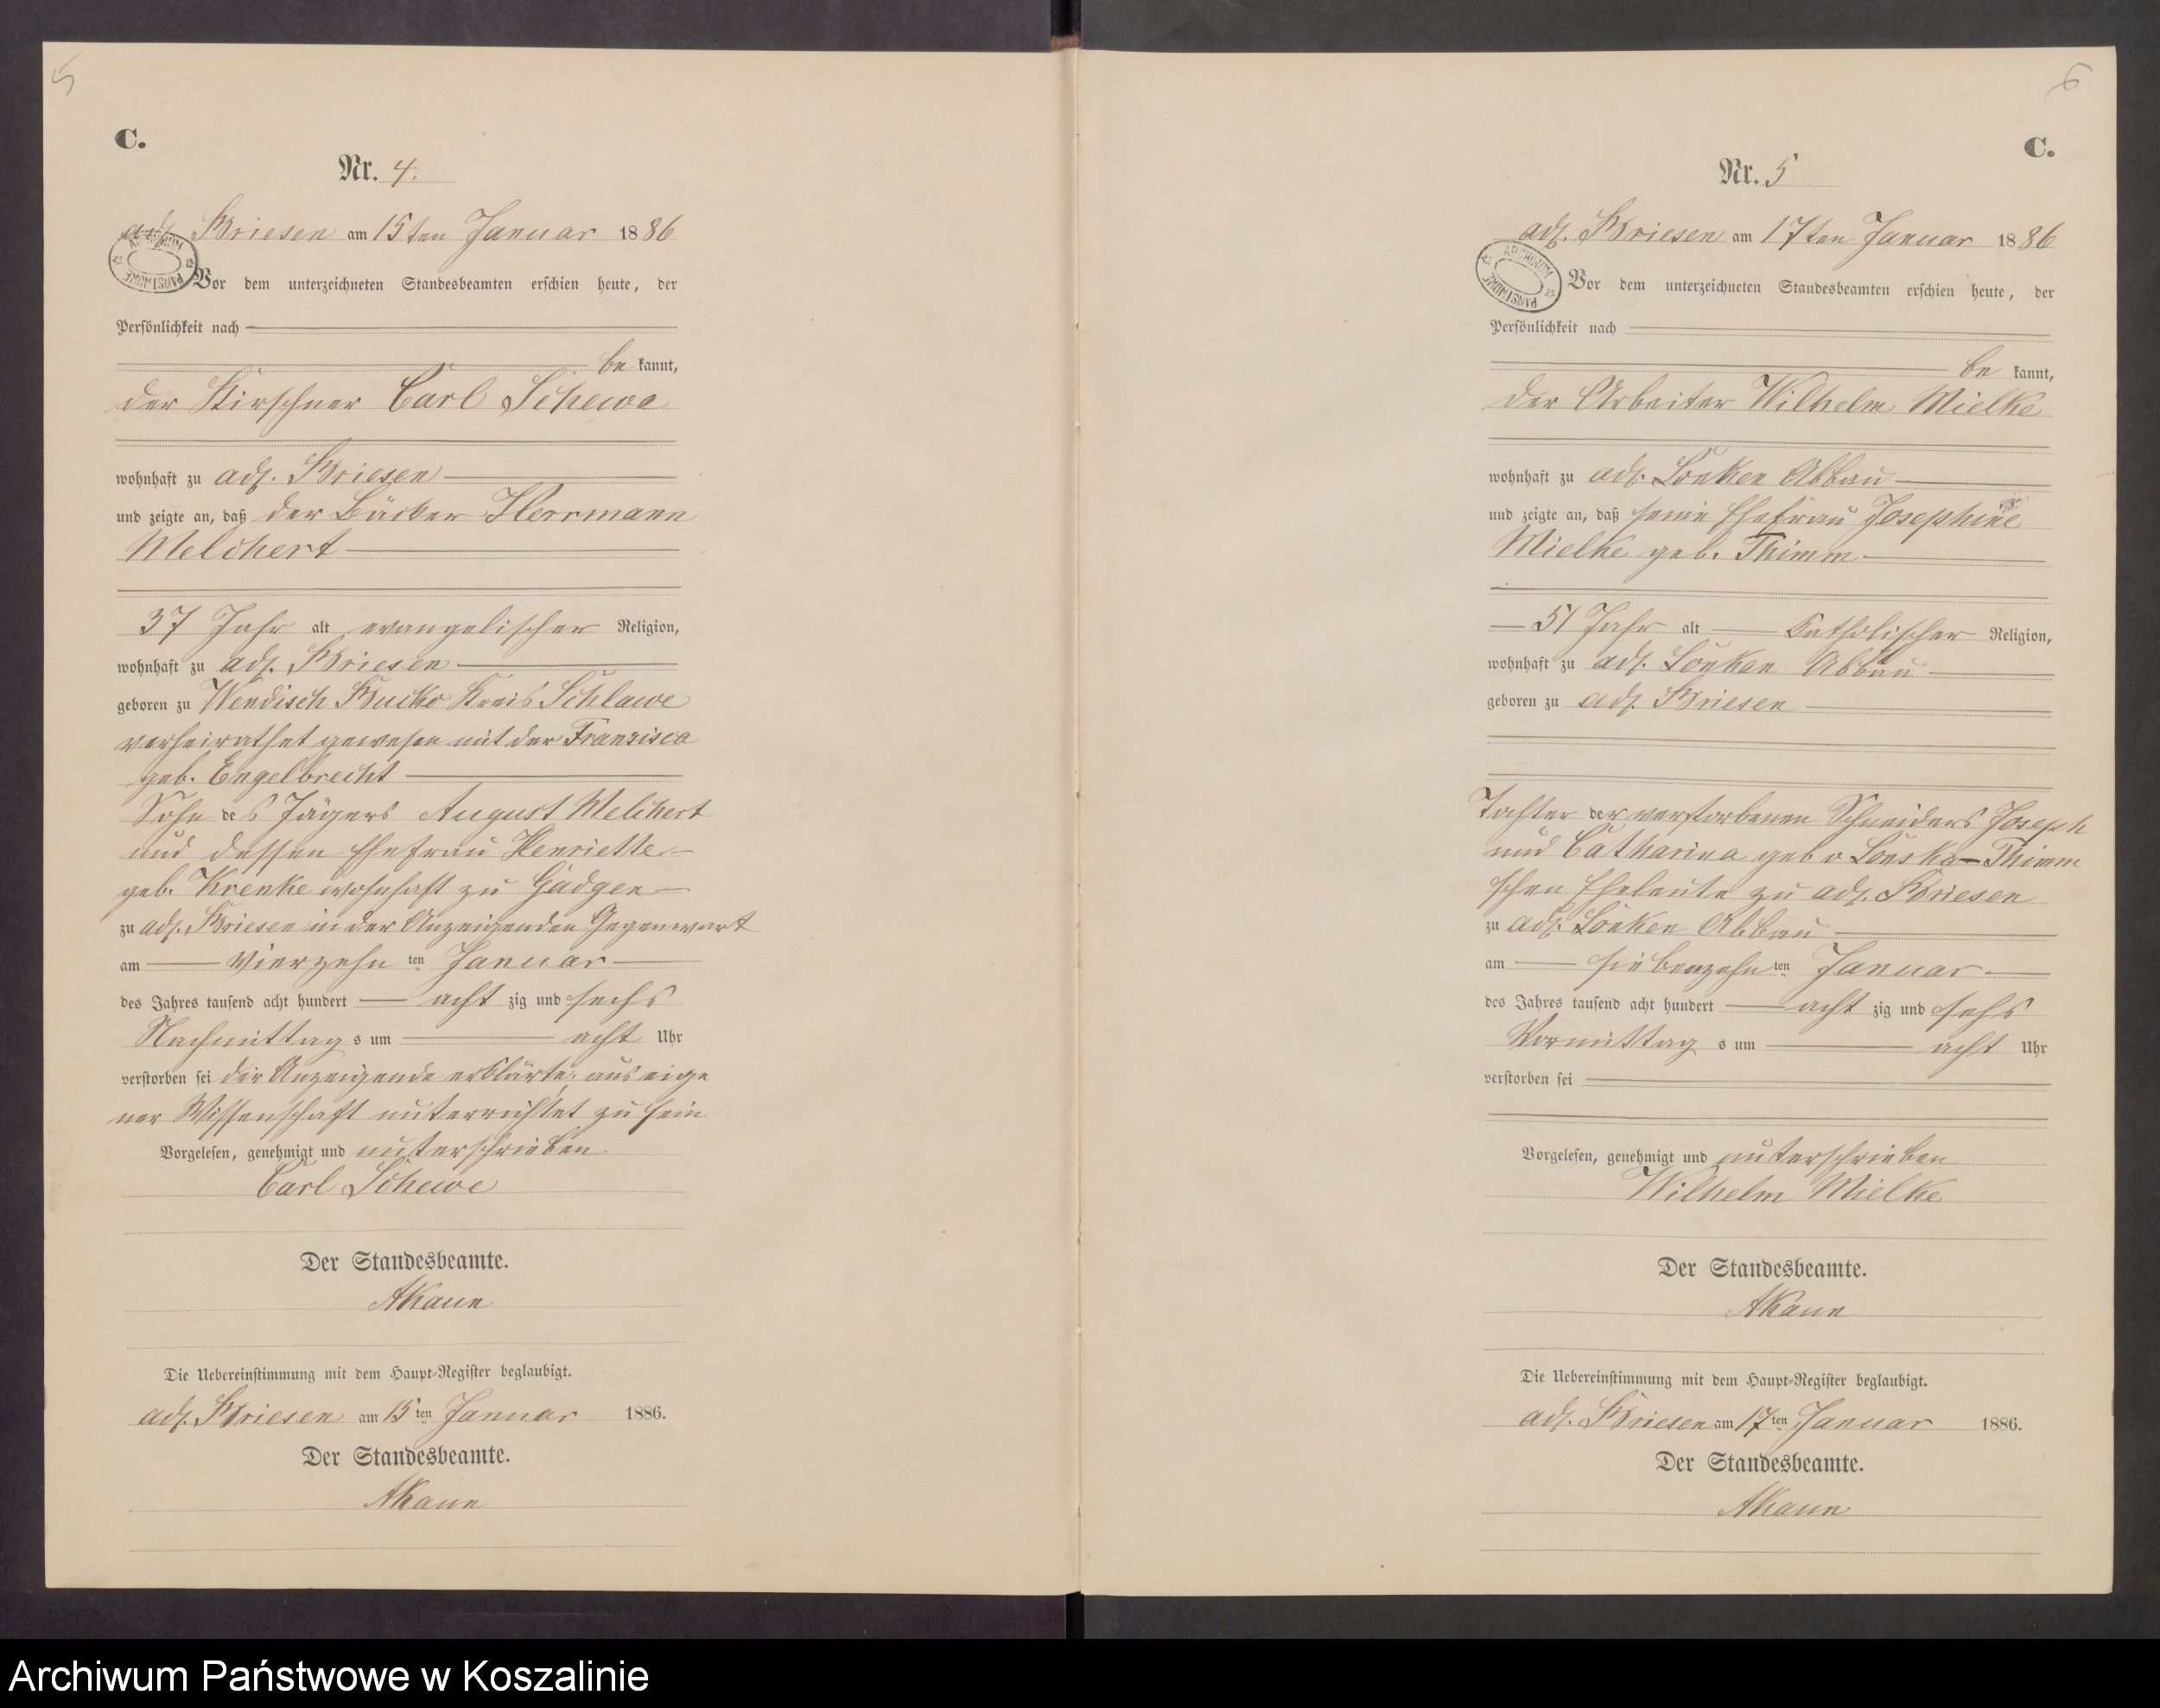 5
C.
Nr. 4.
adl. Briesen am 15ten Januar 1886
Vor dem unterzeichneten Standesbeamten erschien heute, der
Persönlichkeit nach
be kannt,
der Kirschner Carl Schewe
wohnhaft zu adl. Briesen
und zeigte an, daß der Bäcker Herrmann
Melchert
37 Jahr alt evangelischer Religion,
wohnhaft zu adl. Briesen
geboren zu Wendisch Kreis Schlawe
verheirathet gewesen mit der Franzisca
geb. Engelbrecht
Sohn des Jägers August Melchert
und dessen Ehefrau Henriette
geb. Krenke wohnhaft zu Gädgen
zu adl. Briesen in der Anzeigenden Gegenwart
am vierzehn ten Januar
des Jahres tausend acht hundert acht zig und sechs
Nachmittag s um acht Uhr
verstorben sei der Anzeigende erklärte, aus eige
ner Wissenschaft unterrichtet zu sein
Vorgelesen, genehmigt und unterschrieben.
Carl Schewe
Der Standesbeamte.
AKaun
Die Uebereinstimmung mit dem Haupt-Register beglaubigt.
adl. Briesen am 15 ten Januar 1886.
Der Standesbeamte.
AKaun
6
C.
Nr. 5
adl. Briesen am 17ten Januar 1886
Vor dem unterzeichneten Standesbeamten erschien heute, der
Persönlichkeit nach
be kannt,
der Arbeiter Wilhelm Mielke
wohnhaft zu adl. Lonken Abbau
und zeigte an, daß seine Ehefrau Josephine
Mielke geb. Thimm
51 Jahr alt Catholischer Religion,
wohnhaft zu adl. Lonken Abbau
geboren zu adl. Briesen
Tochter der verstorbenen Schneiders Joseph
und Catharina geb v Thimm
schen Eheleute zu adl. Briesen
zu adl. Lonken Abbau
am siebenzehn ten Januar
des Jahres tausend acht hundert acht zig und sechs
Vormittag s um acht Uhr
verstorben sei
Vorgelesen, genehmigt und unterschrieben
Wilhelm Mielke
Der Standesbeamte.
AKaun
Die Uebereinstimmung mit dem Haupt-Register beglaubigt.
adl. Briesen am 17 ten Januar 1886.
Der Standesbeamte.
AKaun
ARCHIWUM PAŃSTWOWE
ARCHIWUM PAŃSTWOWE
Archiwum Państwowe w Koszalinie